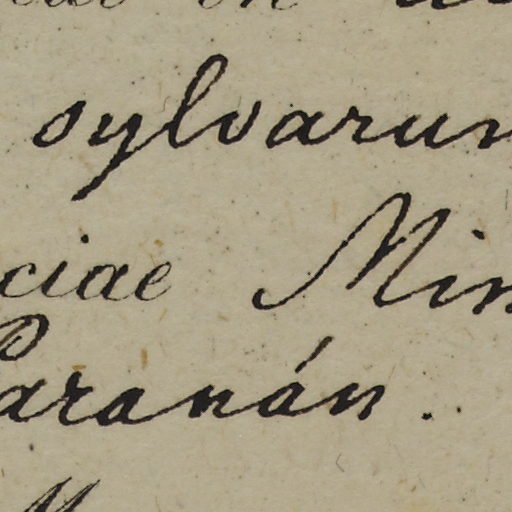 sylvarum
ciae Min
Paranán.